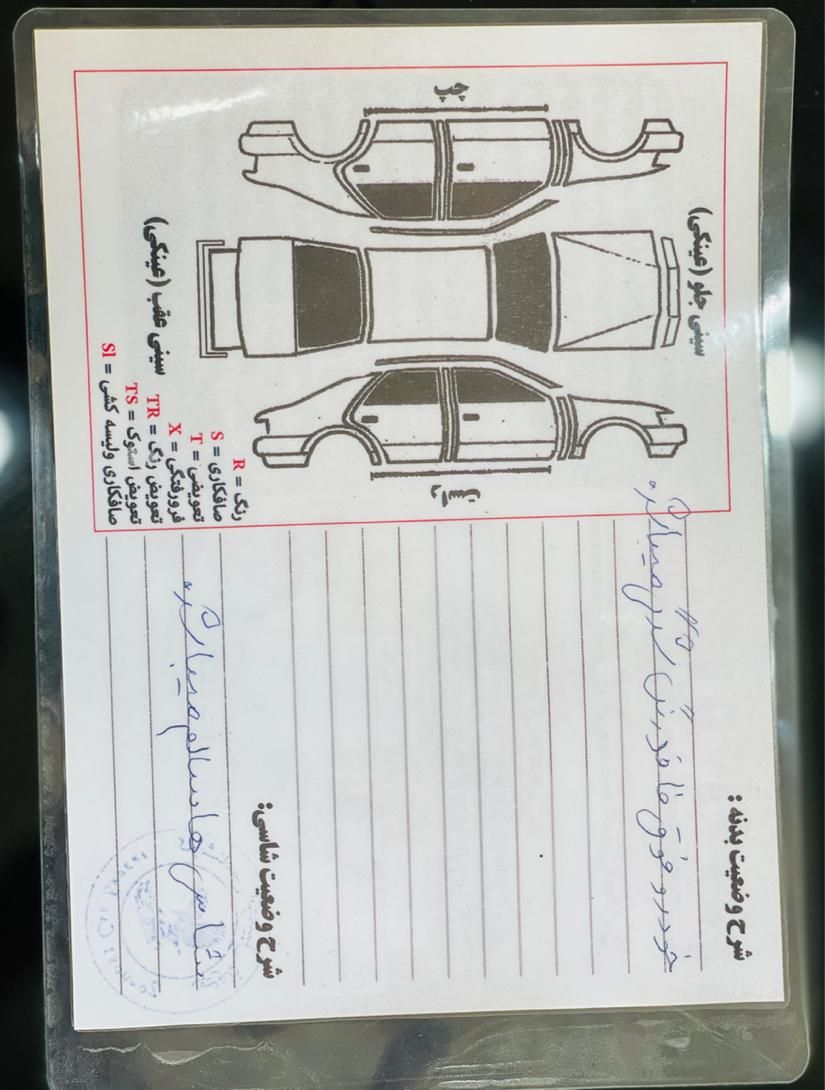 شرح وضعیت بدنه :
خودرو فوق فاقد رنگ میباشد
شرح وضعیت شاسی:
شاسی ها سالم میباشد
سینی جلو (عینکی)
چپ
راست
سینی عقب (عینکی)
رنگ = R
صافکاری = S
تعویض = T
فرورفتگی = X
تعویض رنگ = TR
تعویض استوک = TS
صافکاری ولیسه کشی = Sl